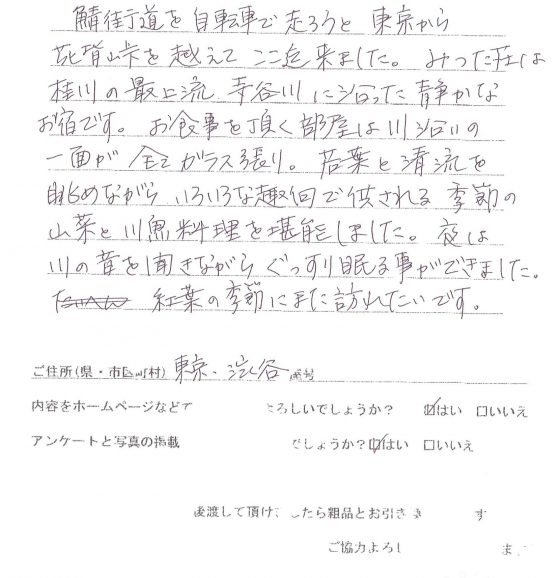 鯖街道を自転車で走ろうと東京から
花背峠を越えてここ迄来ました。みつたに荘は
桂川の最上流 寺谷川に沿った静かな
お宿です。お食事を頂く部屋は川沿いの
一面が全てガラス張り。若葉と清流を
眺めながらいろいろな趣向で供される季節の
山菜と川魚料理を堪能しました。夜は
川の音を聞きながらぐっすり眠る事ができました。
紅葉の季節にまた訪れたいです。
ご住所(県・市区町村) 東京、渋谷 番号
内容をホームページなどで ろしいでしょうか? ☑はい □いいえ
アンケートと写真の掲載 でしょうか? ☑はい □いいえ
後渡して頂け したら粗品とお引き す
ご協力よろし ま